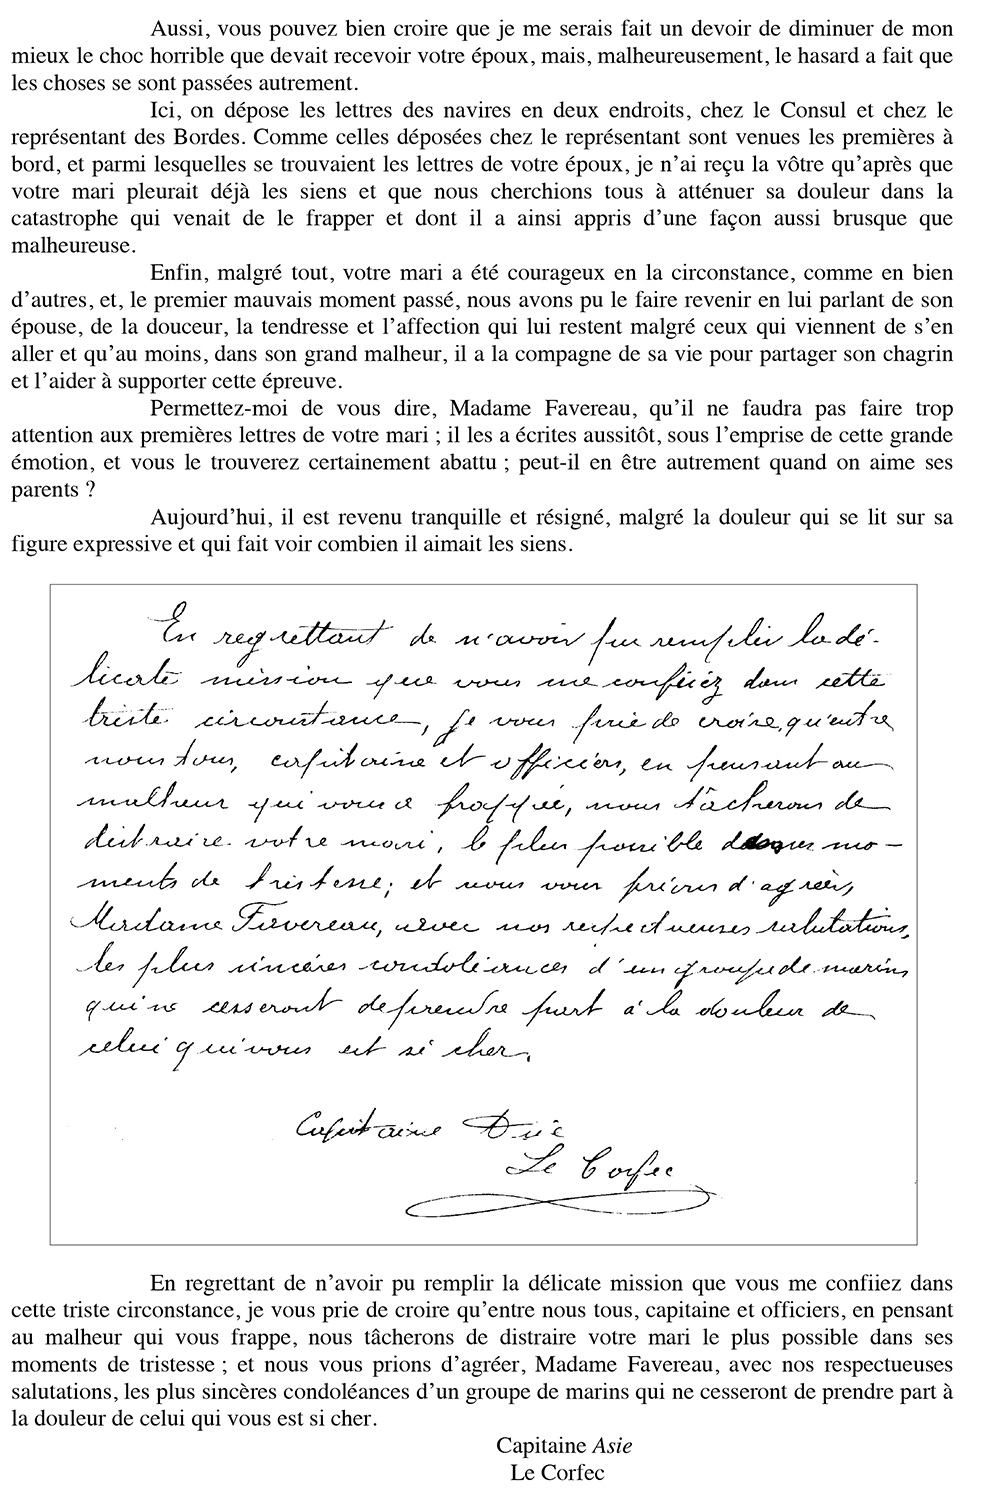 Aussi, vous pouvez bien croire que je me serais fait un devoir de diminuer de mon
mieux le choc horrible que devait recevoir votre époux, mais, malheureusement, le hasard a fait que
les choses se sont passées autrement.
Ici, on dépose les lettres des navires en deux endroits, chez le Consul et chez le
représentant des Bordes. Comme celles déposées chez le représentant sont venues les premières à
bord, et parmi lesquelles se trouvaient les lettres de votre époux, je n’ai reçu la vôtre qu’après que
votre mari pleurait déjà les siens et que nous cherchions tous à atténuer sa douleur dans la
catastrophe qui venait de le frapper et dont il a ainsi appris d’une façon aussi brusque que
malheureuse.
Enfin, malgré tout, votre mari a été courageux en la circonstance, comme en bien
d’autres, et, le premier mauvais moment passé, nous avons pu le faire revenir en lui parlant de son
épouse, de la douceur, la tendresse et l’affection qui lui restent malgré ceux qui viennent de s’en
aller et qu’au moins, dans son grand malheur, il a la compagne de sa vie pour partager son chagrin
et l’aider à supporter cette épreuve.
Permettez-moi de vous dire, Madame Favereau, qu’il ne faudra pas faire trop
attention aux premières lettres de votre mari ; il les a écrites aussitôt, sous l’emprise de cette grande
émotion, et vous le trouverez certainement abattu ; peut-il en être autrement quand on aime ses
parents ?
Aujourd’hui, il est revenu tranquille et résigné, malgré la douleur qui se lit sur sa
figure expressive et qui fait voir combien il aimait les siens.
En regrettant de n'avoir pu remplir la dé-
licate mission que vous me confiiez dans cette
triste circonstance, je vous prie de croire, qu'entre
nous tous, capitaine et officiers, en pensant au
malheur qui vous a frappée, nous tâcherons de
distraire votre mari, le plus possible dans ses mo-
ments de tristesse; et nous vous prions d'agréer,
Madame Favereau, avec nos respectueuses salutations,
les plus sincères condoléances d'un groupe de marins
qui ne cesseront de prendre part à la douleur de
celui qui vous est si cher.
Capitaine Asie
Le Corfec
En regrettant de n’avoir pu remplir la délicate mission que vous me confiiez dans
cette triste circonstance, je vous prie de croire qu’entre nous tous, capitaine et officiers, en pensant
au malheur qui vous frappe, nous tâcherons de distraire votre mari le plus possible dans ses
moments de tristesse ; et nous vous prions d’agréer, Madame Favereau, avec nos respectueuses
salutations, les plus sincères condoléances d’un groupe de marins qui ne cesseront de prendre part à
la douleur de celui qui vous est si cher.
Capitaine Asie
Le Corfec